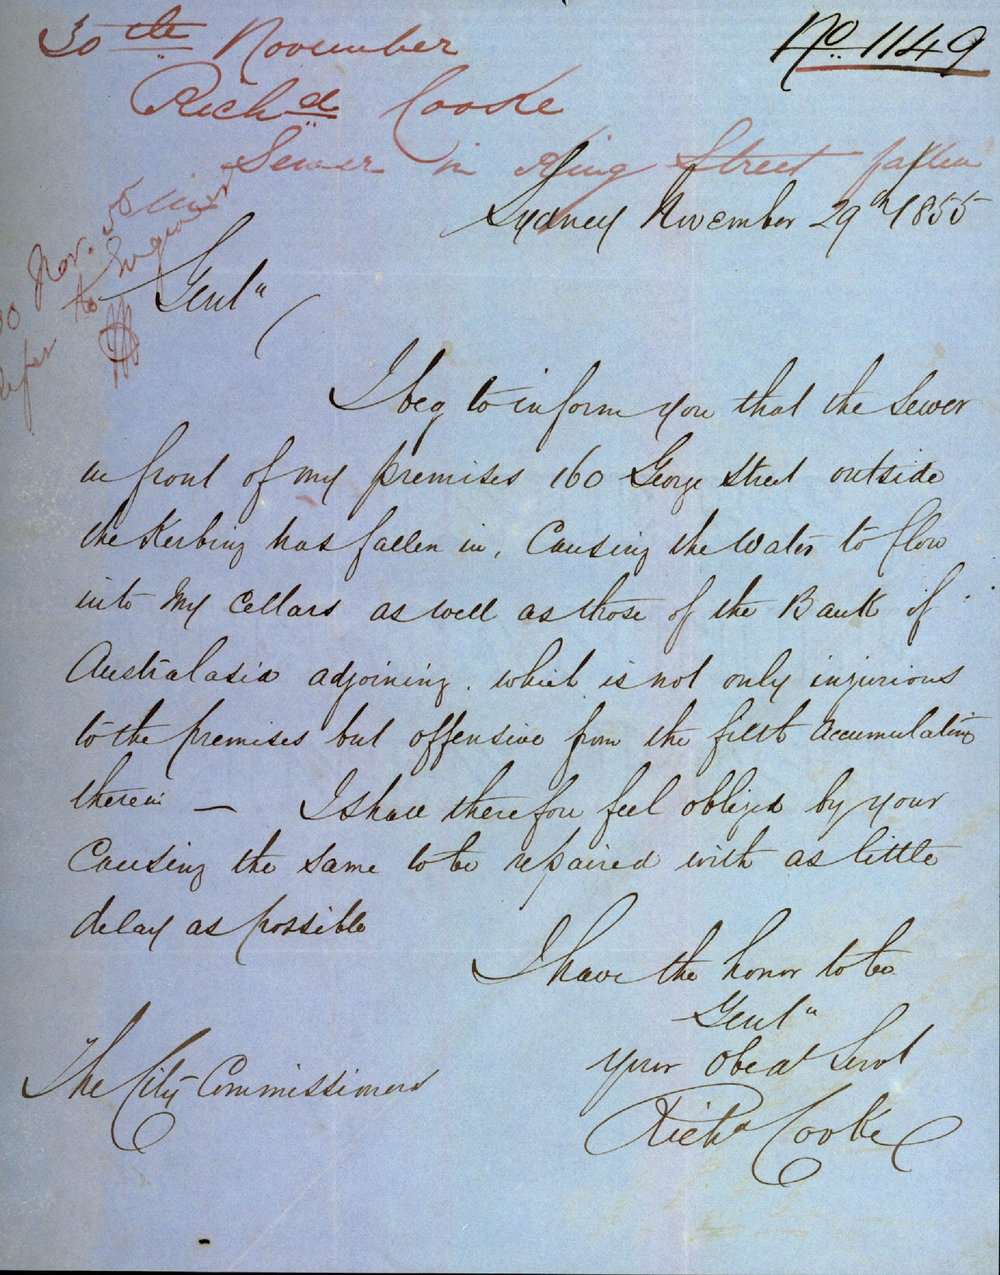 30th November
No. 1149
Richd Cooke
Sewer in King Street fallen in
Sydney November 29th 1855
30 Nov. 55
Refer to
Gentn
I beg to inform you that the Sewer
in front of my premises 160 George Street outside
the Kerbing has fallen in, Causing the Water to flow
into My Cellars as well as those of the Bank of
Australasia adjoining. which is not only injurious
to the premises but offensive from the filth Accumulating
therein — I shall therefore feel obliged by your
Causing the same to be repaired with as little
delay as possible
I have the honor to be
Gentn
your Obedt Servt
Richd Cooke
The City Commissioners